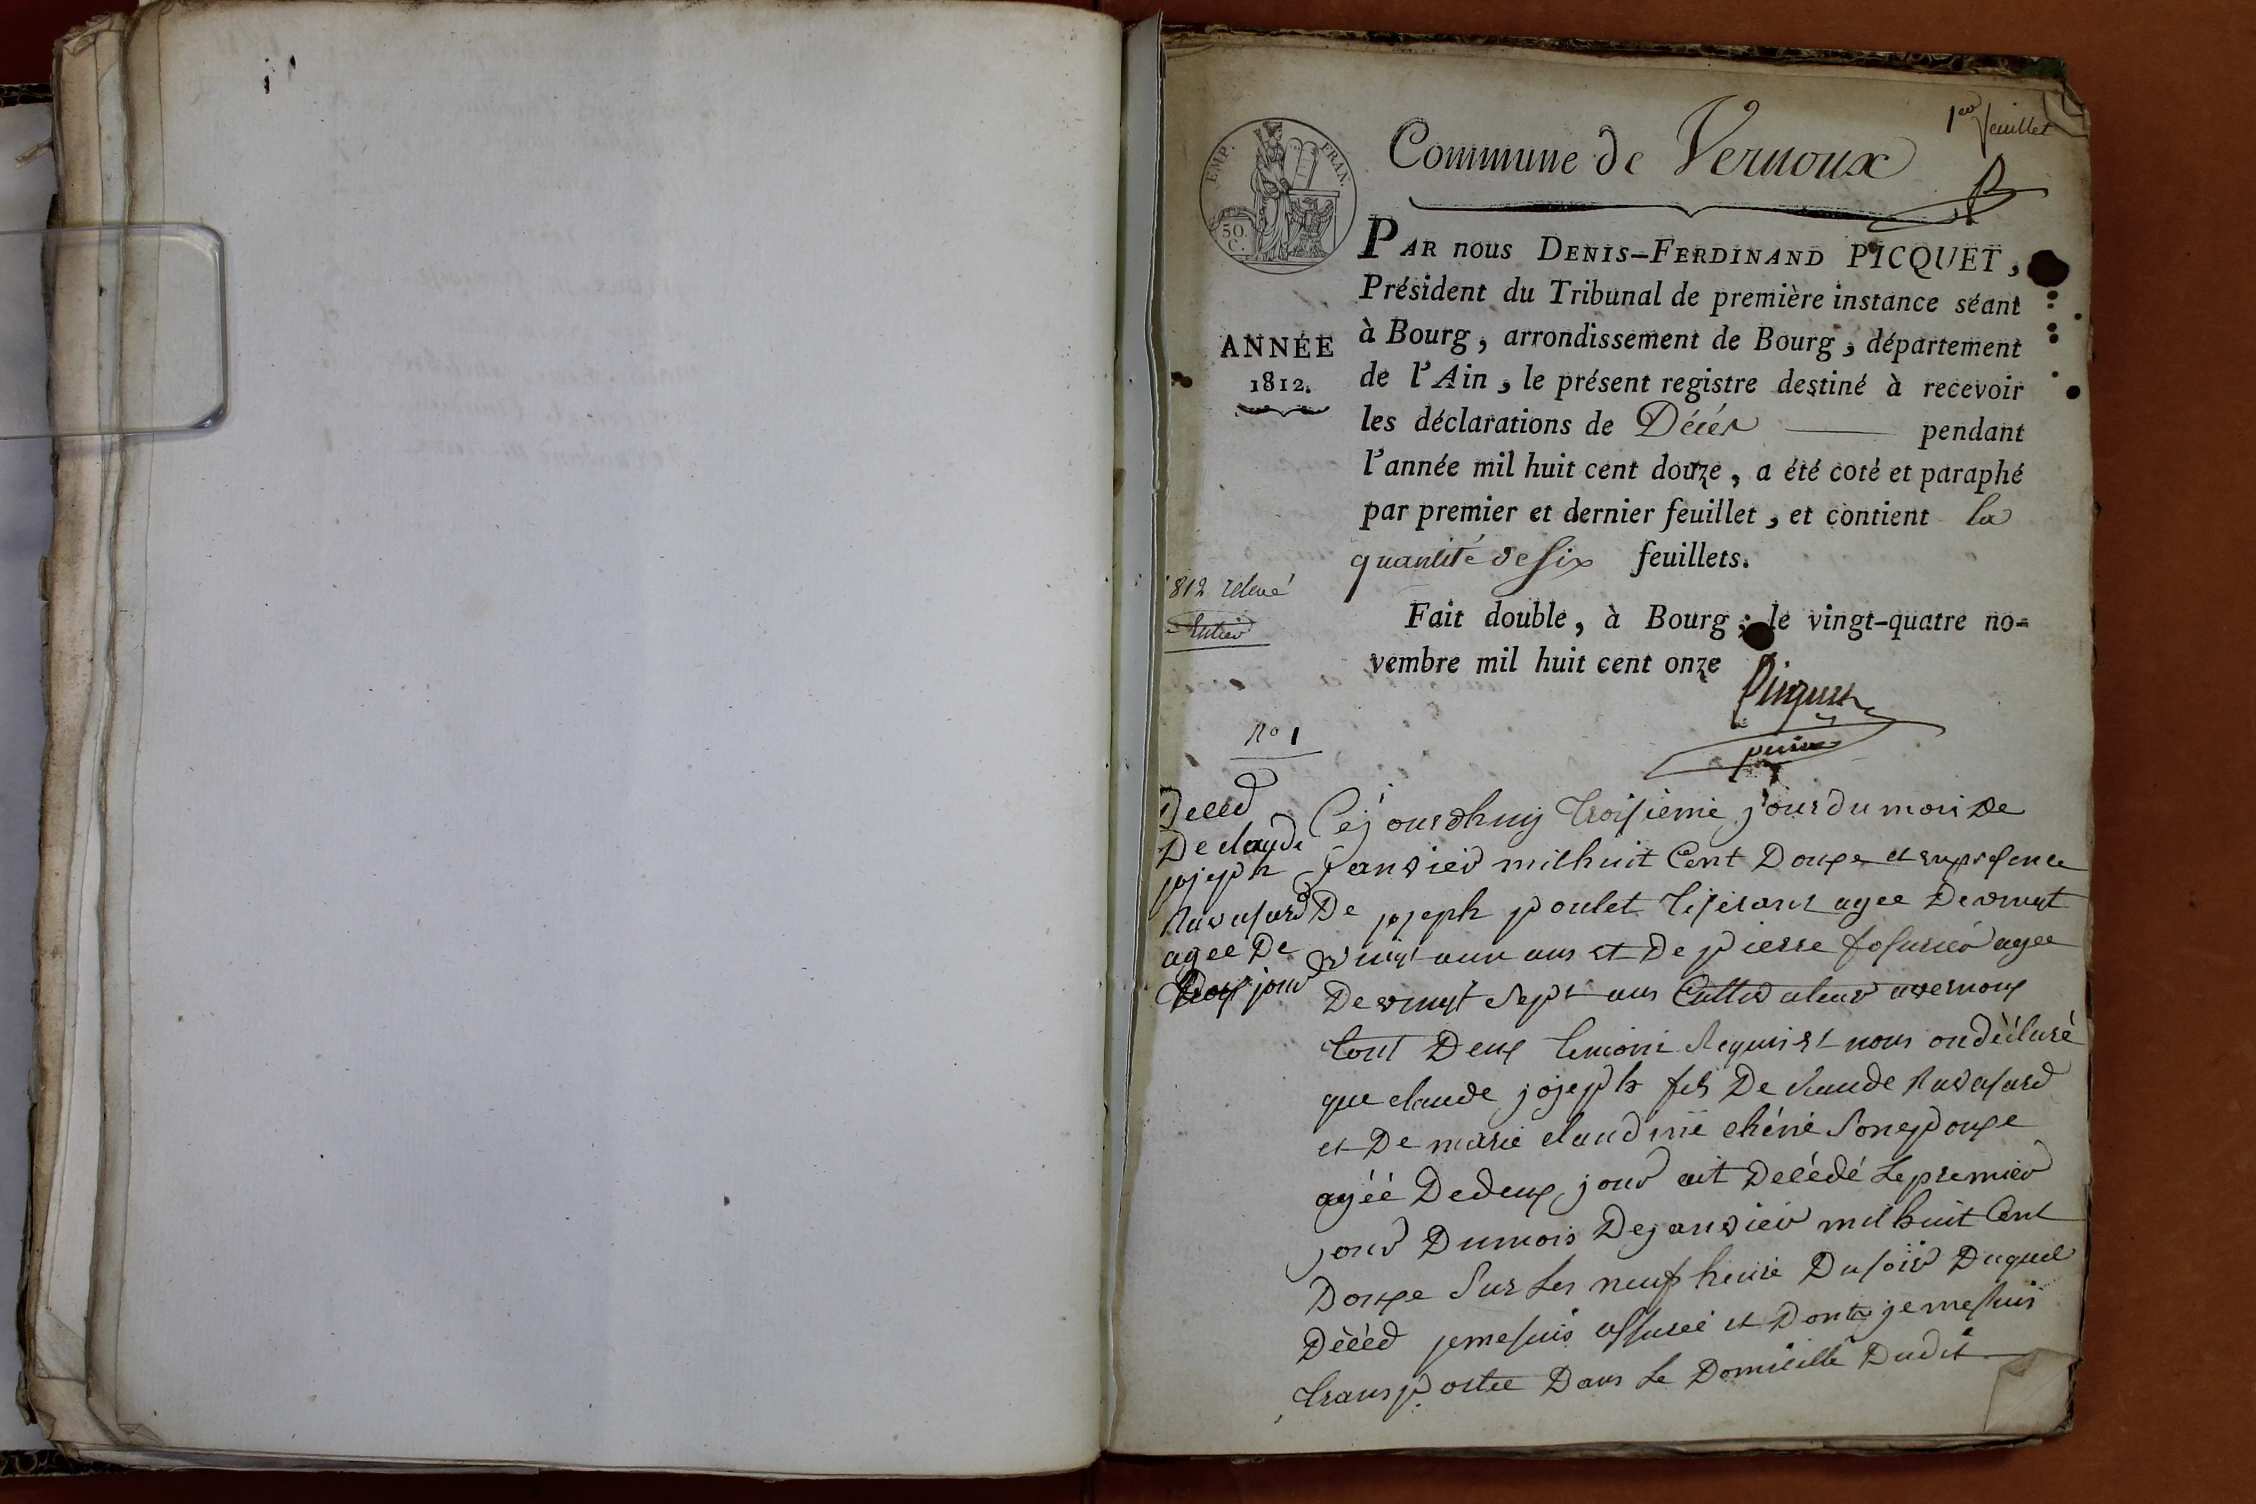 1er feuillet
Commune de Vernoux
EMP. FRAN.
50.
C.
PAR nous DENIS-FERDINAND PICQUET,
Président du Tribunal de première instance séant
à Bourg, arrondissement de Bourg, département
de l'Ain, le présent registre destiné à recevoir
les déclarations de Décès pendant
l'année mil huit cent douze, a été coté et paraphé
par premier et dernier feuillet, et contient la
quantité de six feuillets.
Fait double, à Bourg, le vingt-quatre no-
vembre mil huit cent onze
Picquet
ANNÉE
1812.
1812 relevé
Entier
No 1
Deced
De claude
joseph
Ravasard
agee De
Deux jour
Cejourdhuy troisieme jour du mois De
janvier mil huit Cent Douze et en presence
De joseph poulet tiserant agee De vingt
vingt aun ans et De pierre agee
De vingt sept ans Cultivateur a vernoux
tout Deux temoin Requis et nous on déclaré
que claude joseph fils De claude Ravasard
et De marie claudine chéne Son epouze
agéé De deux jour ait Decédé Le premier
jour Du mois De janvier mil huit Cent
Douze Sur Les neuf heure Du soir Duquel
Décéd je me suis assuréé et Dont je me suis
transportee Dans Le Domicille Dudit